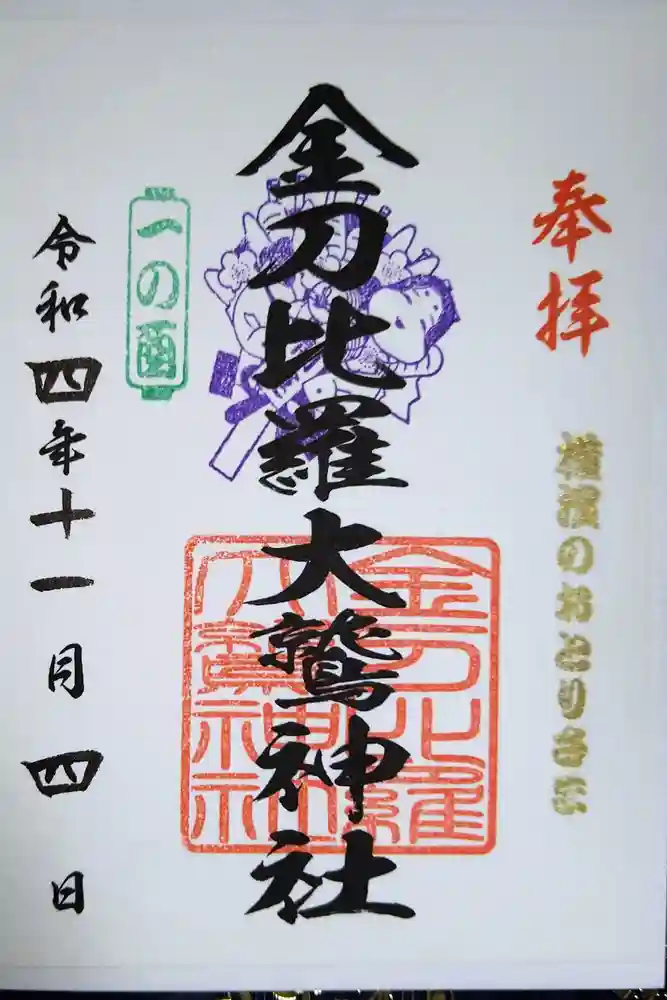 奉拝
横濱のおとりさま
金刀比羅大鷲神社
金刀比羅
大鷲神社
一の酉
令和四年十一月四日